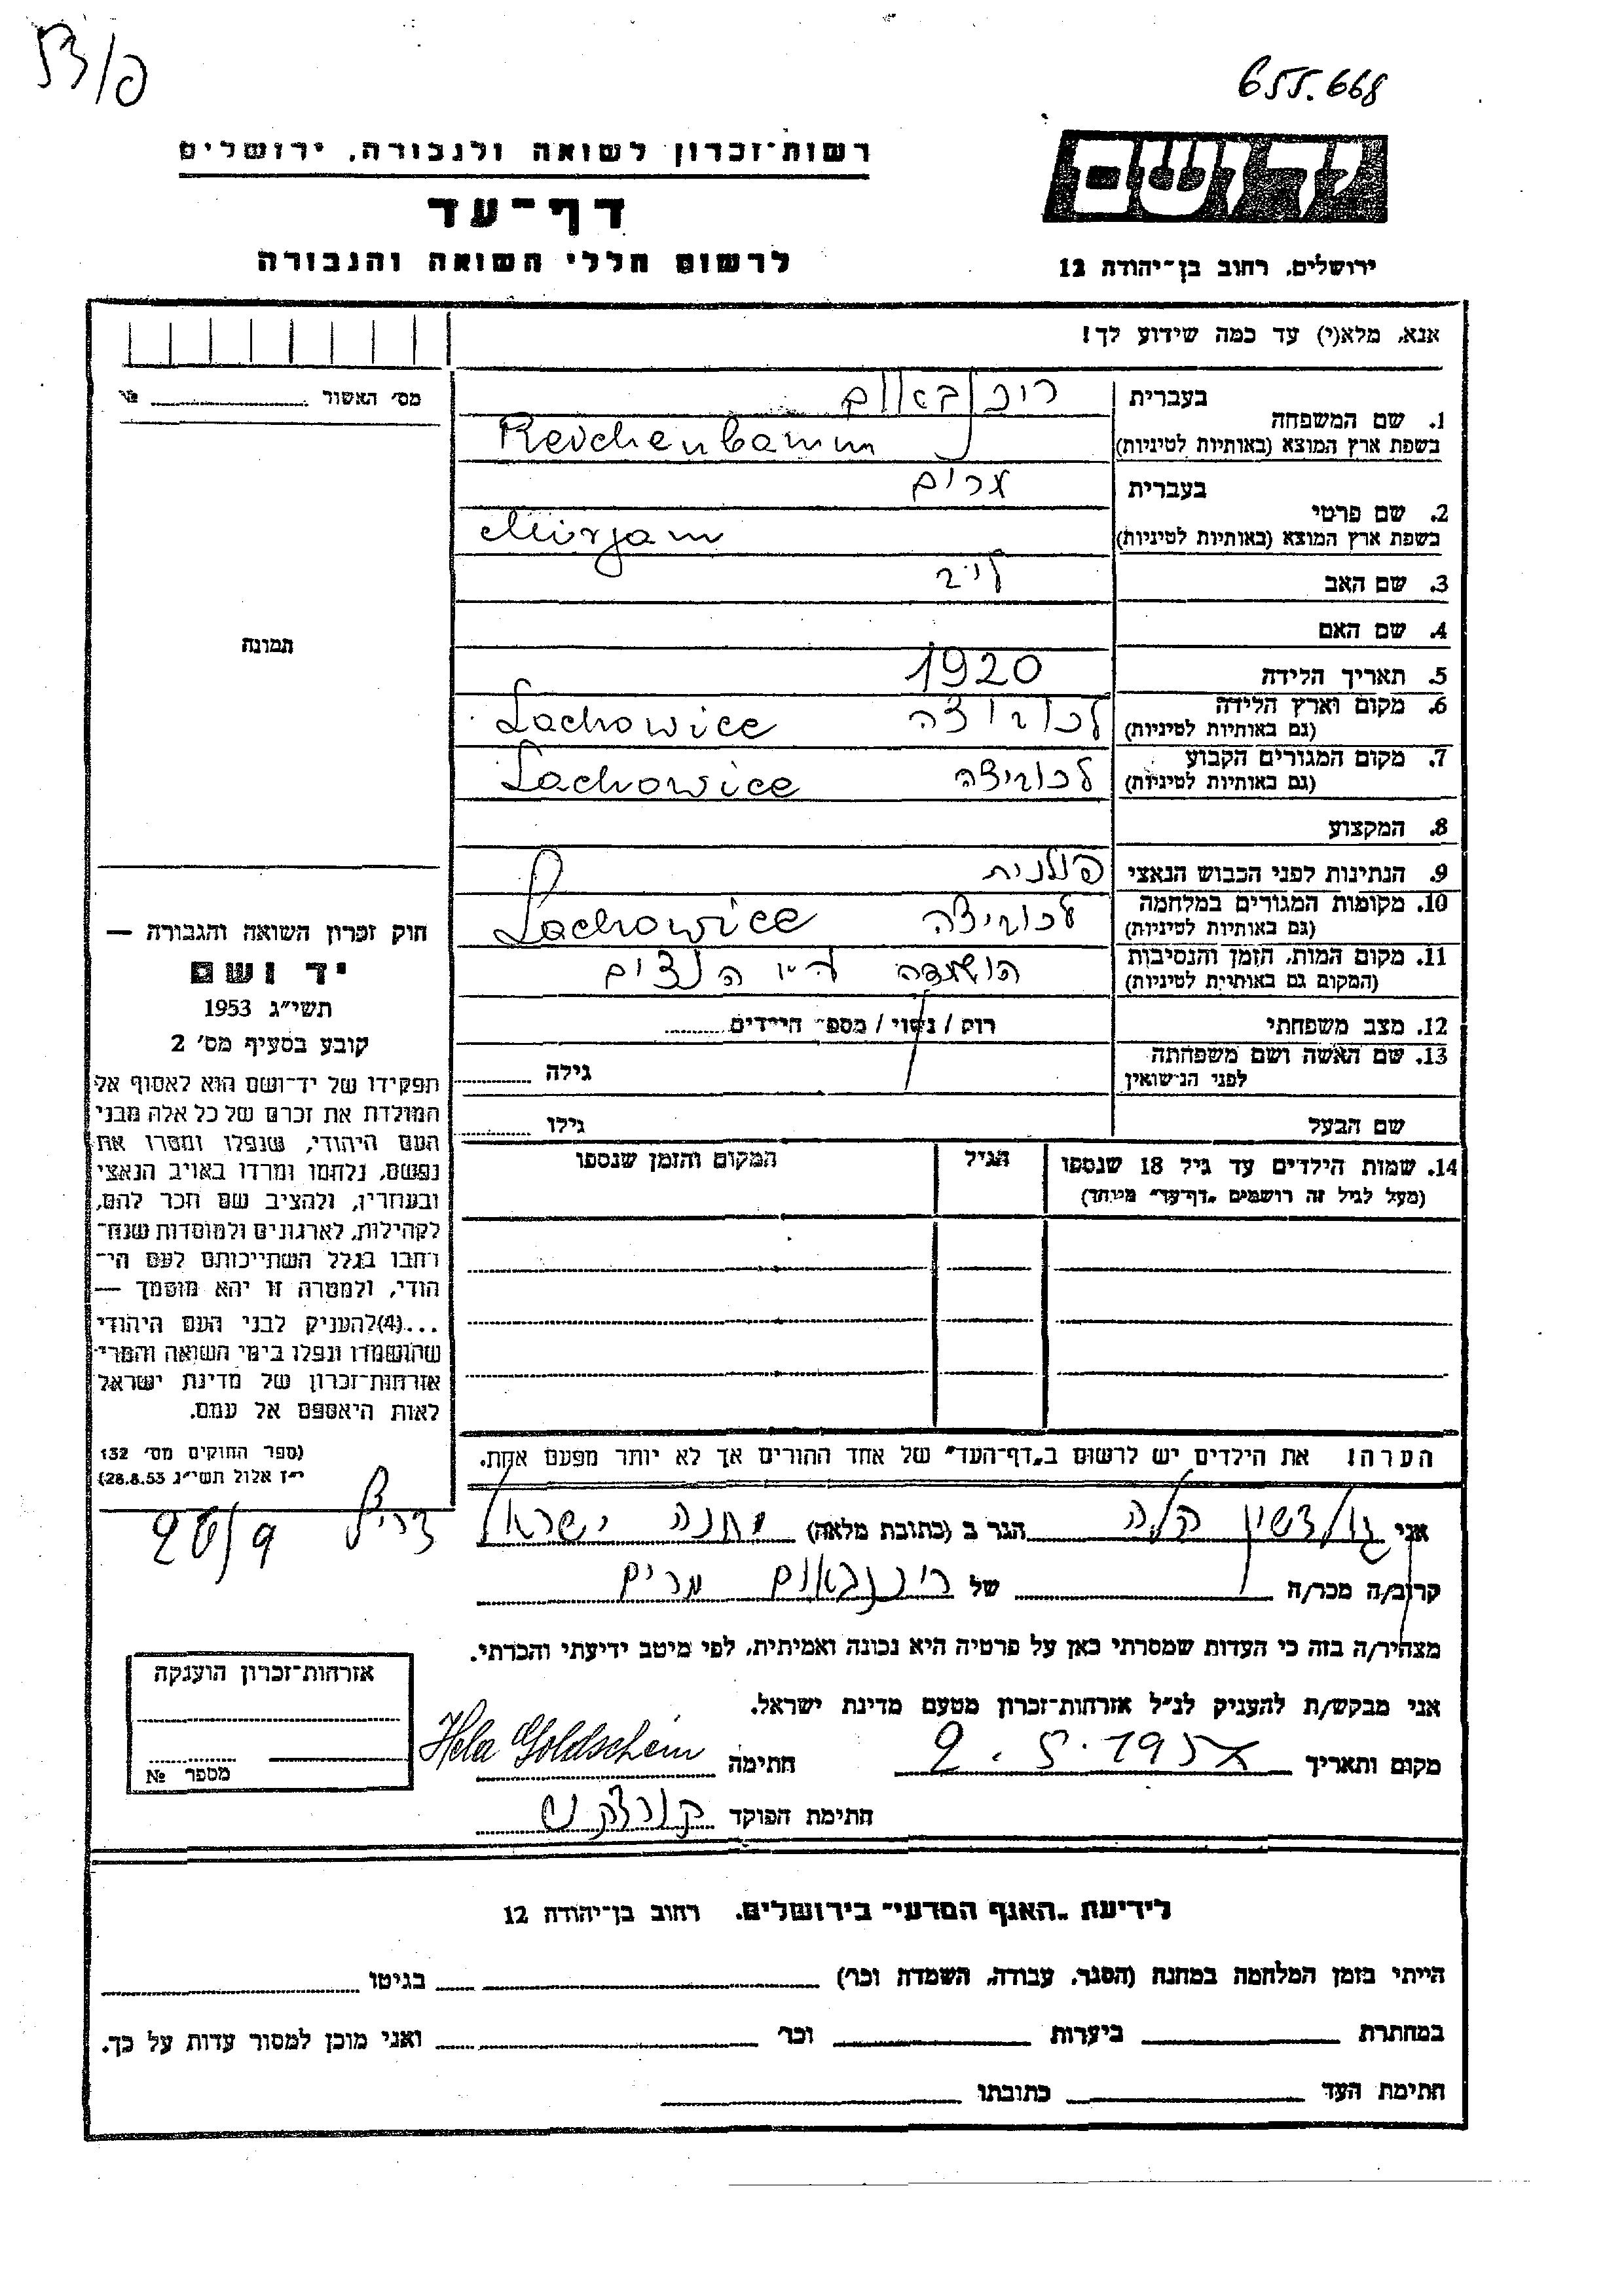 655.668
רשות־זכרון לשואה ולגבורה, ירושלים
דף־עד
לרשום חללי השואה והגבורה
יד ושם
ירושלים, רחוב בן־יהודה 12
אנא, מלא(י) עד כמה שידוע לך!
מס׳ האשור № 
בעברית
1. שם המשפחה
Reichenbaum
בשפת ארץ המוצא (באותיות לטיניות)
בעברית מרים
2. שם פרטי
Mirjam
בשפת ארץ המוצא (באותיות לטיניות)
3. שם האב לייב
4. שם האם
תמונה
5. תאריך הלידה 1920
6. מקום וארץ הלידה לכוויצה Lachowice
(גם באותיות לטיניות)
7. מקום המגורים הקבוע לכוויצה Lachowice
(גם באותיות לטיניות)
8. המקצוע
9. הנתינות לפני הכבוש הנאצי פולנית
10. מקומות המגורים במלחמה לכוויצה Lachowice
(גם באותיות לטיניות)
11. מקום המות, הזמן והנסיבות הושמדה ע״י הנצים
(המקום גם באותיות לטיניות)
12. מצב משפחתי רווק / נשוי / מספר הילדים
13. שם האשה ושם משפחתה
לפני הנישואין גילה
שם הבעל גילו
14. שמות הילדים עד גיל 18 שנספו הגיל המקום והזמן שנספו
(מעל לגיל זה רושמים „דף־עד״ מיוחד)
הערה: את הילדים יש לרשום ב„דף־העד״ של אחד ההורים אך לא יותר מפעם אחת.
חוק זכרון השואה והגבורה —
יד ושם
תשי״ג 1953
קובע בסעיף מס׳ 2
תפקידו של יד־ושם הוא לאסוף אל
המולדת את זכרם של כל אלה מבני
העם היהודי, שנפלו ומסרו את
נפשם, נלחמו ומרדו באויב הנאצי
ובעוזריו, ולהציב שם וזכר להם,
לקהילות, לארגונים ולמוסדות שנח־
רחבו בגלל השתייכותם לעם הי־
הודי, ולמטרה זו יהא מוסמך —
...(4)להעניק לבני העם היהודי
שהושמדו ונפלו בימי השואה והמרי
אזרחות־זכרון של מדינת ישראל
לאות היאספם אל עמם.
(ספר החוקים מס׳ 132
י״ז אלול תשי״ג 28.8.53)
אני גולדשין הלה הגר ב (כתובת מלאה) מחנה ישראל צריף 26/9
קרוב/ה מכר/ה של רייכנבאום מרים
מצהיר/ה בזה כי העדות שמסרתי כאן על פרטיה היא נכונה ואמיתית, לפי מיטב ידיעתי והכרתי.
אני מבקש/ת להעניק לנ״ל אזרחות־זכרון מטעם מדינת ישראל.
מקום ותאריך 2.5.195 חתימה Hela Goldschein
חתימת הפוקד
אזרחות־זכרון הוענקה
מספר №
לידיעת „האגף המדעי״ בירושלים, רחוב בן־יהודה 12
הייתי בזמן המלחמה במחנה (הסגר, עבודה, השמדה וכו׳) בגיטו
במחתרת ביערות וכו׳ ואני מוכן למסור עדות על כך.
חתימת העד כתובתו